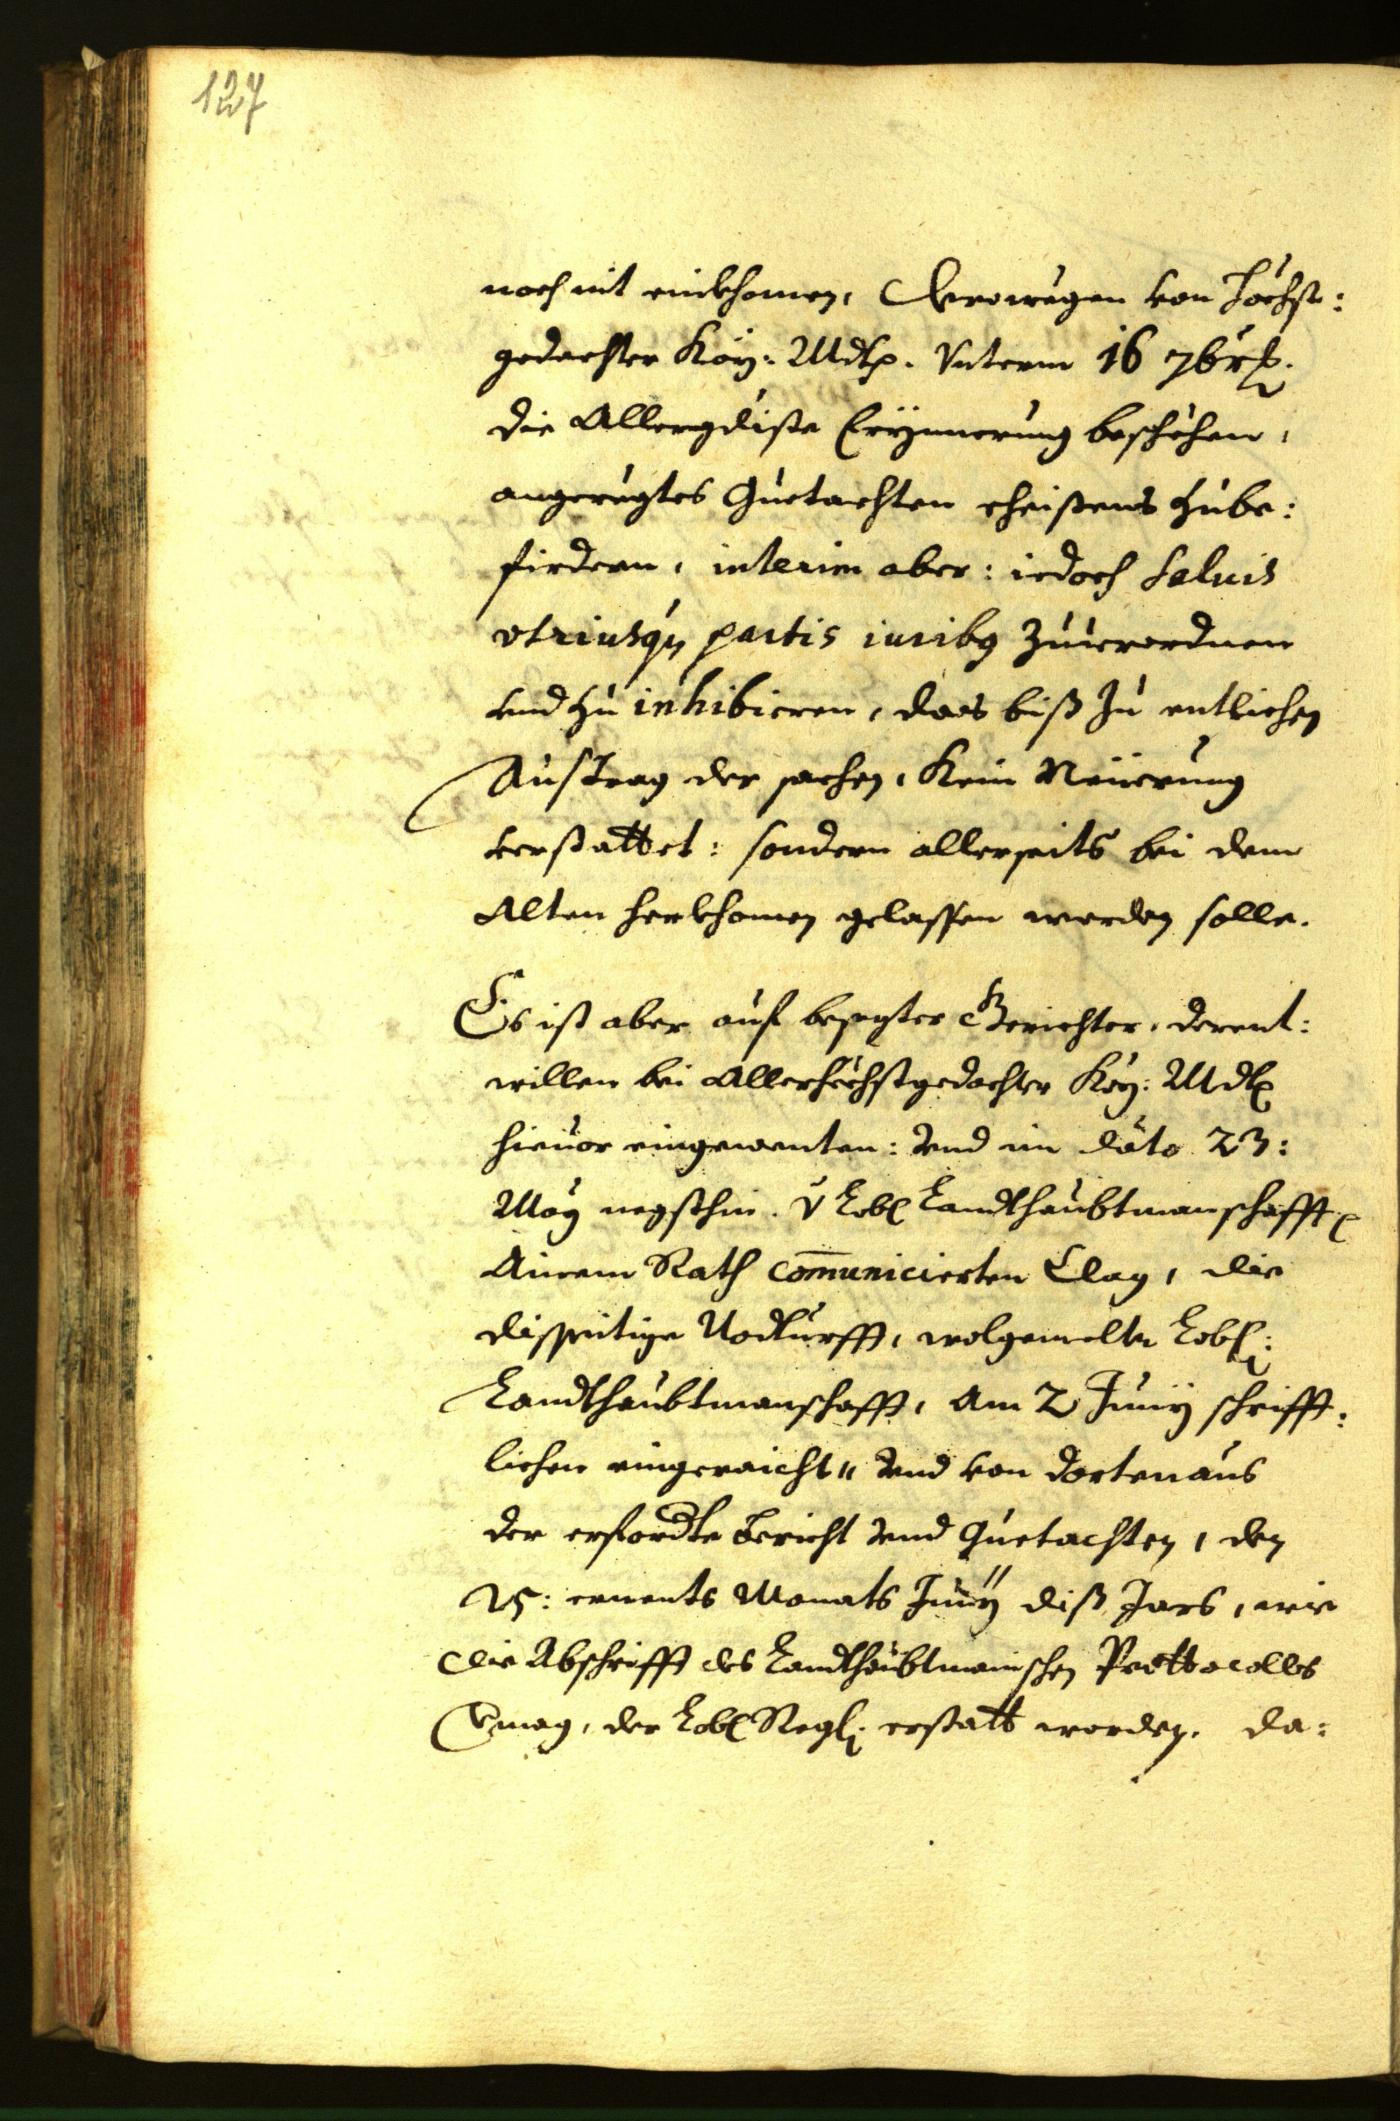 127
noch nit einkhomen, Derowegen von Höchst:
gedachter Köy: Mdtp. Vnterm 16 7brp.
die Allergdiste Erÿnnerung beschehen,
angeregtes Guetachten eheistens zube:
firdern, interim aber: iedoch saluis
vtriusq partis iuribg zuuerordnen
vnd zu inhibieren, das biß zu entlichen
Austrag der sachen, Kein Neüerung
verstattet: sondern allerseits bei dem
Alten herkhomen gelassen werden solle.
Es ist aber auf besagter Gerichter, derent:
willen bei Allerhöchstgedachter Köy: Mdt
hieuor eingewenten: vnd in dato 23:
May negsthin. V Lobl Landtshaubtmanschafft
Ainem Rath comunicierten Clag, die
disseitige Nodturfft, wolgemelter Lobl:
Landtshaubtmanschafft, Am 2 Junÿ schrifft:
lichen eingeraicht, vnd von dortenaus
der erfordte Bericht vnd Guetachten, den
25: ernents Monats Junÿ diß Jars, wie
die Abschrifft des Landtshaubtmanischen Prottocolles
Vmag, der Lobl Regl: erstatt worden. da: